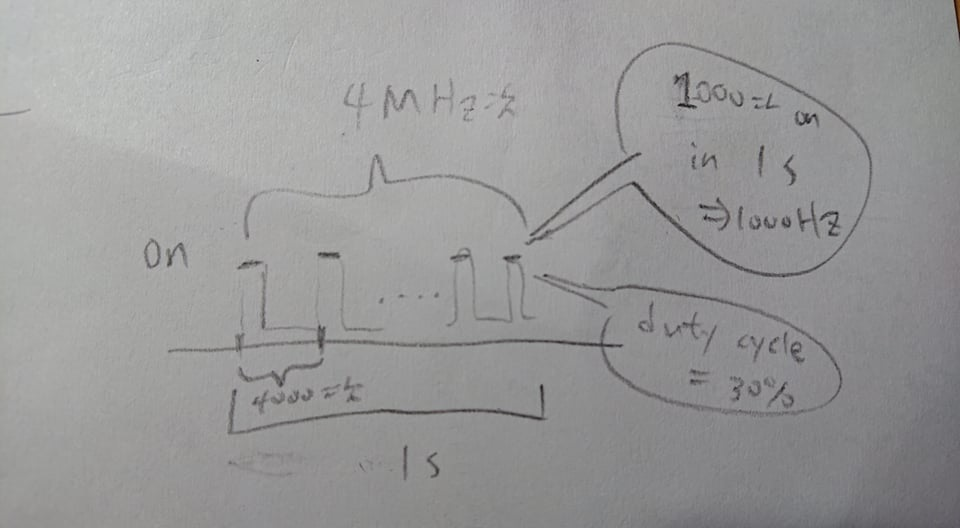 4MHz
1000 on
in 1s
⇒1000Hz
on
....
duty cycle
= 30%
4000
1s